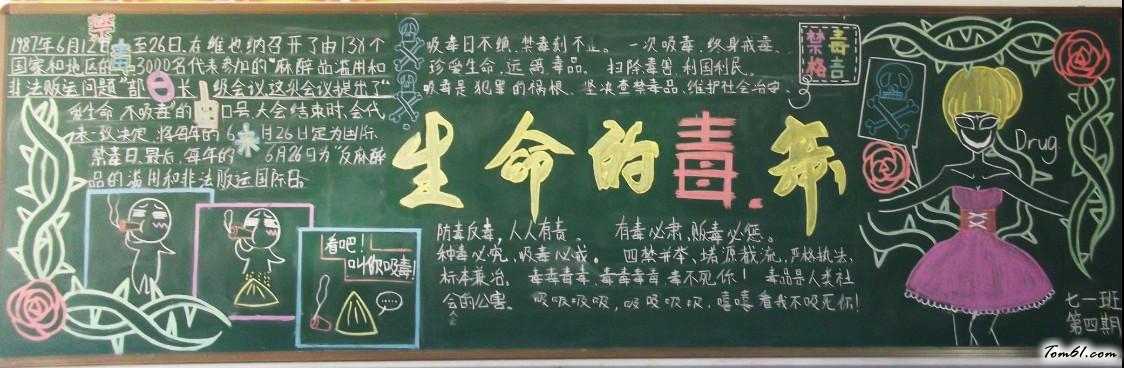 1987年6月12日至26日,在维也纳召开了由138个
国家和地区的3000名代表参加的“麻醉品滥用和
非法贩运问题”部长级会议这次会议提出了“
爱生命,不吸毒”的口号,大会结束时,会代
表一致决定,将每年的6月26日定为国际
禁毒日,最后,每年的6月26日为“反麻醉
品的滥用和非法贩运国际日。
禁毒
吸毒日不绝,禁毒刻不止。一次吸毒,终身戒毒。
珍爱生命,远离毒品。扫除毒害,利国利民。
吸毒是犯罪的祸根,坚决查禁毒品,维护社会治安。
禁毒
格言
生命的毒条
防毒反毒,人人有责。有毒必肃,贩毒必惩。
种毒必究,吸毒必戒。四禁并举、堵源截流,严格执法,
标本兼治。毒毒毒害毒,毒毒毒毒,毒不死你!毒品是人类社
会的公害。吸吸吸吸,吸吸吸吸,嘻嘻看我不吸死你!
看吧!
叫你吸毒!
Drug
七一班
第四期
Tom61.com